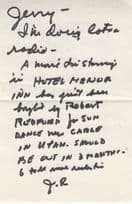 Jerry –
I'm doing lots a
radio –
A movie I'm starring
in HOTEL MANOR
INN has just been
bought by ROBERT
REDFORD for SUN
DANCE MOV CABLE
IN UTAH. SHOULD
BE OUT IN 3 MONTHS.
6
J.R